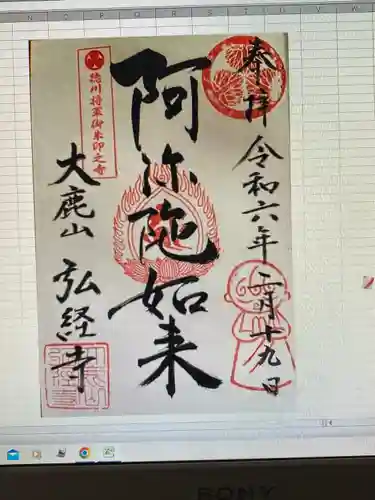 奉拝
令和六年
二月十九日
阿弥陀如来
徳川将軍御朱印之寺
大鹿山
弘経寺
SONY